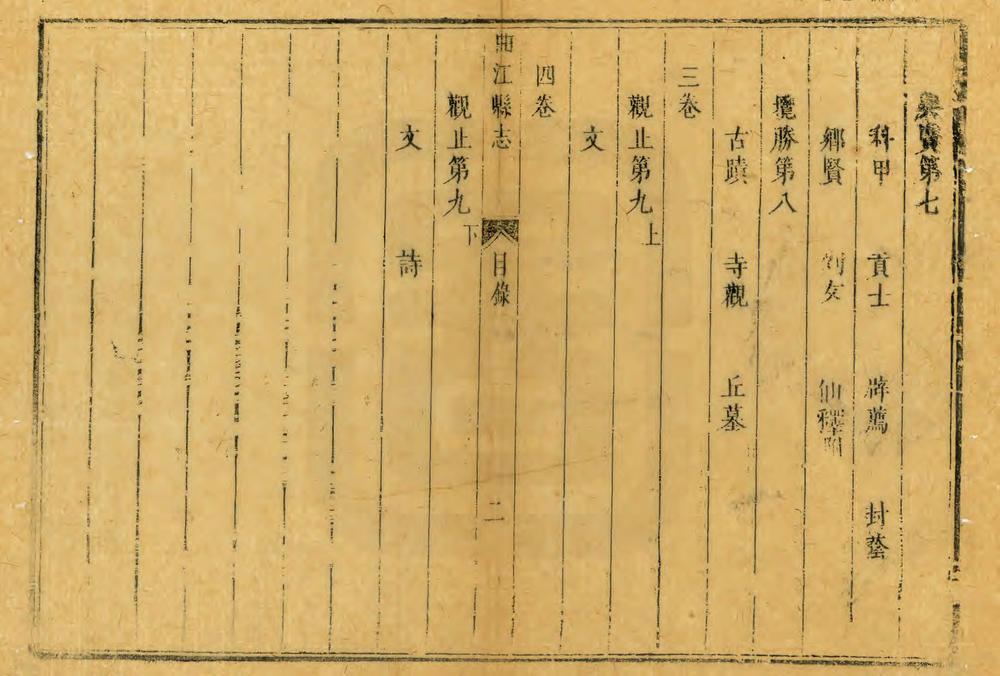 第七
科甲 貢士 辟薦 封蔭
鄉賢 列女 仙釋附
攬勝第八
古蹟 寺觀 丘墓
三卷
觀止第九上
文
曲江縣志 目錄 二
四卷
觀止第九下
文 詩